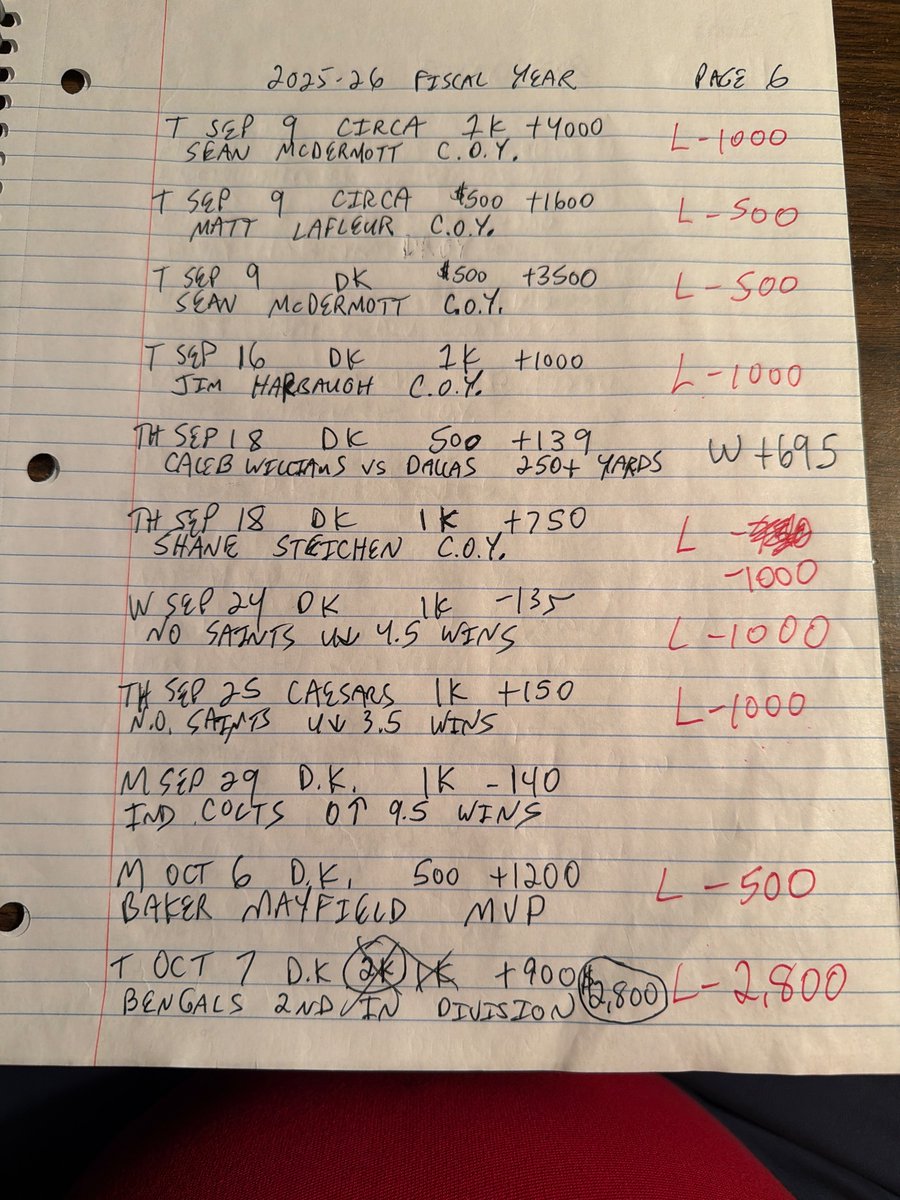 2025-26 FISCAL YEAR PAGE 6
T SEP 9 CIRCA 1K +4000 L-1000
SEAN McDERMOTT C.O.Y.
T SEP 9 CIRCA $500 +1600 L-500
MATT LAFLEUR C.O.Y.
T SEP 9 DK $500 +3500 L-500
SEAN McDERMOTT C.O.Y.
T SEP 16 DK 1K +1000 L-1000
JIM HARBAUGH C.O.Y.
TH SEP 18 DK 500 +139 W+695
CALEB WILLIAMS VS DALLAS 250+ YARDS
TH SEP 18 DK 1K +750 L -
SHANE STEICHEN C.O.Y.
-1000
W SEP 24 DK 1K -135
NO SAINTS U↓ 4.5 WINS L-1000
TH SEP 25 CAESARS 1K +150 L-1000
N.O. SAINTS U↓ 3.5 WINS
M SEP 29 D.K. 1K -140
IND COLTS O↑ 9.5 WINS
M OCT 6 D.K. 500 +1200 L-500
BAKER MAYFIELD MVP
T OCT 7 D.K 2K 1K +900 $2,800 L-2,800
BENGALS 2ND IN DIVISION